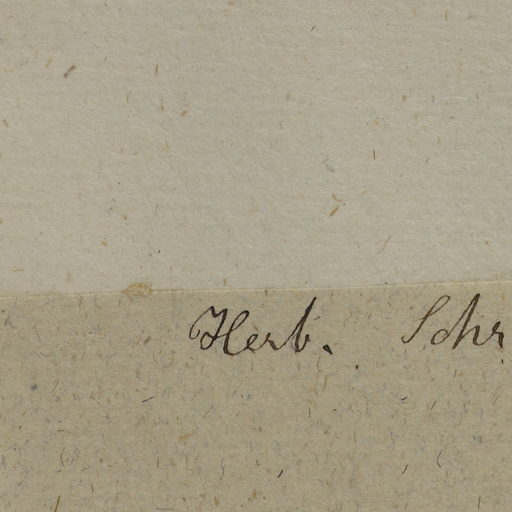 Herb. Schr